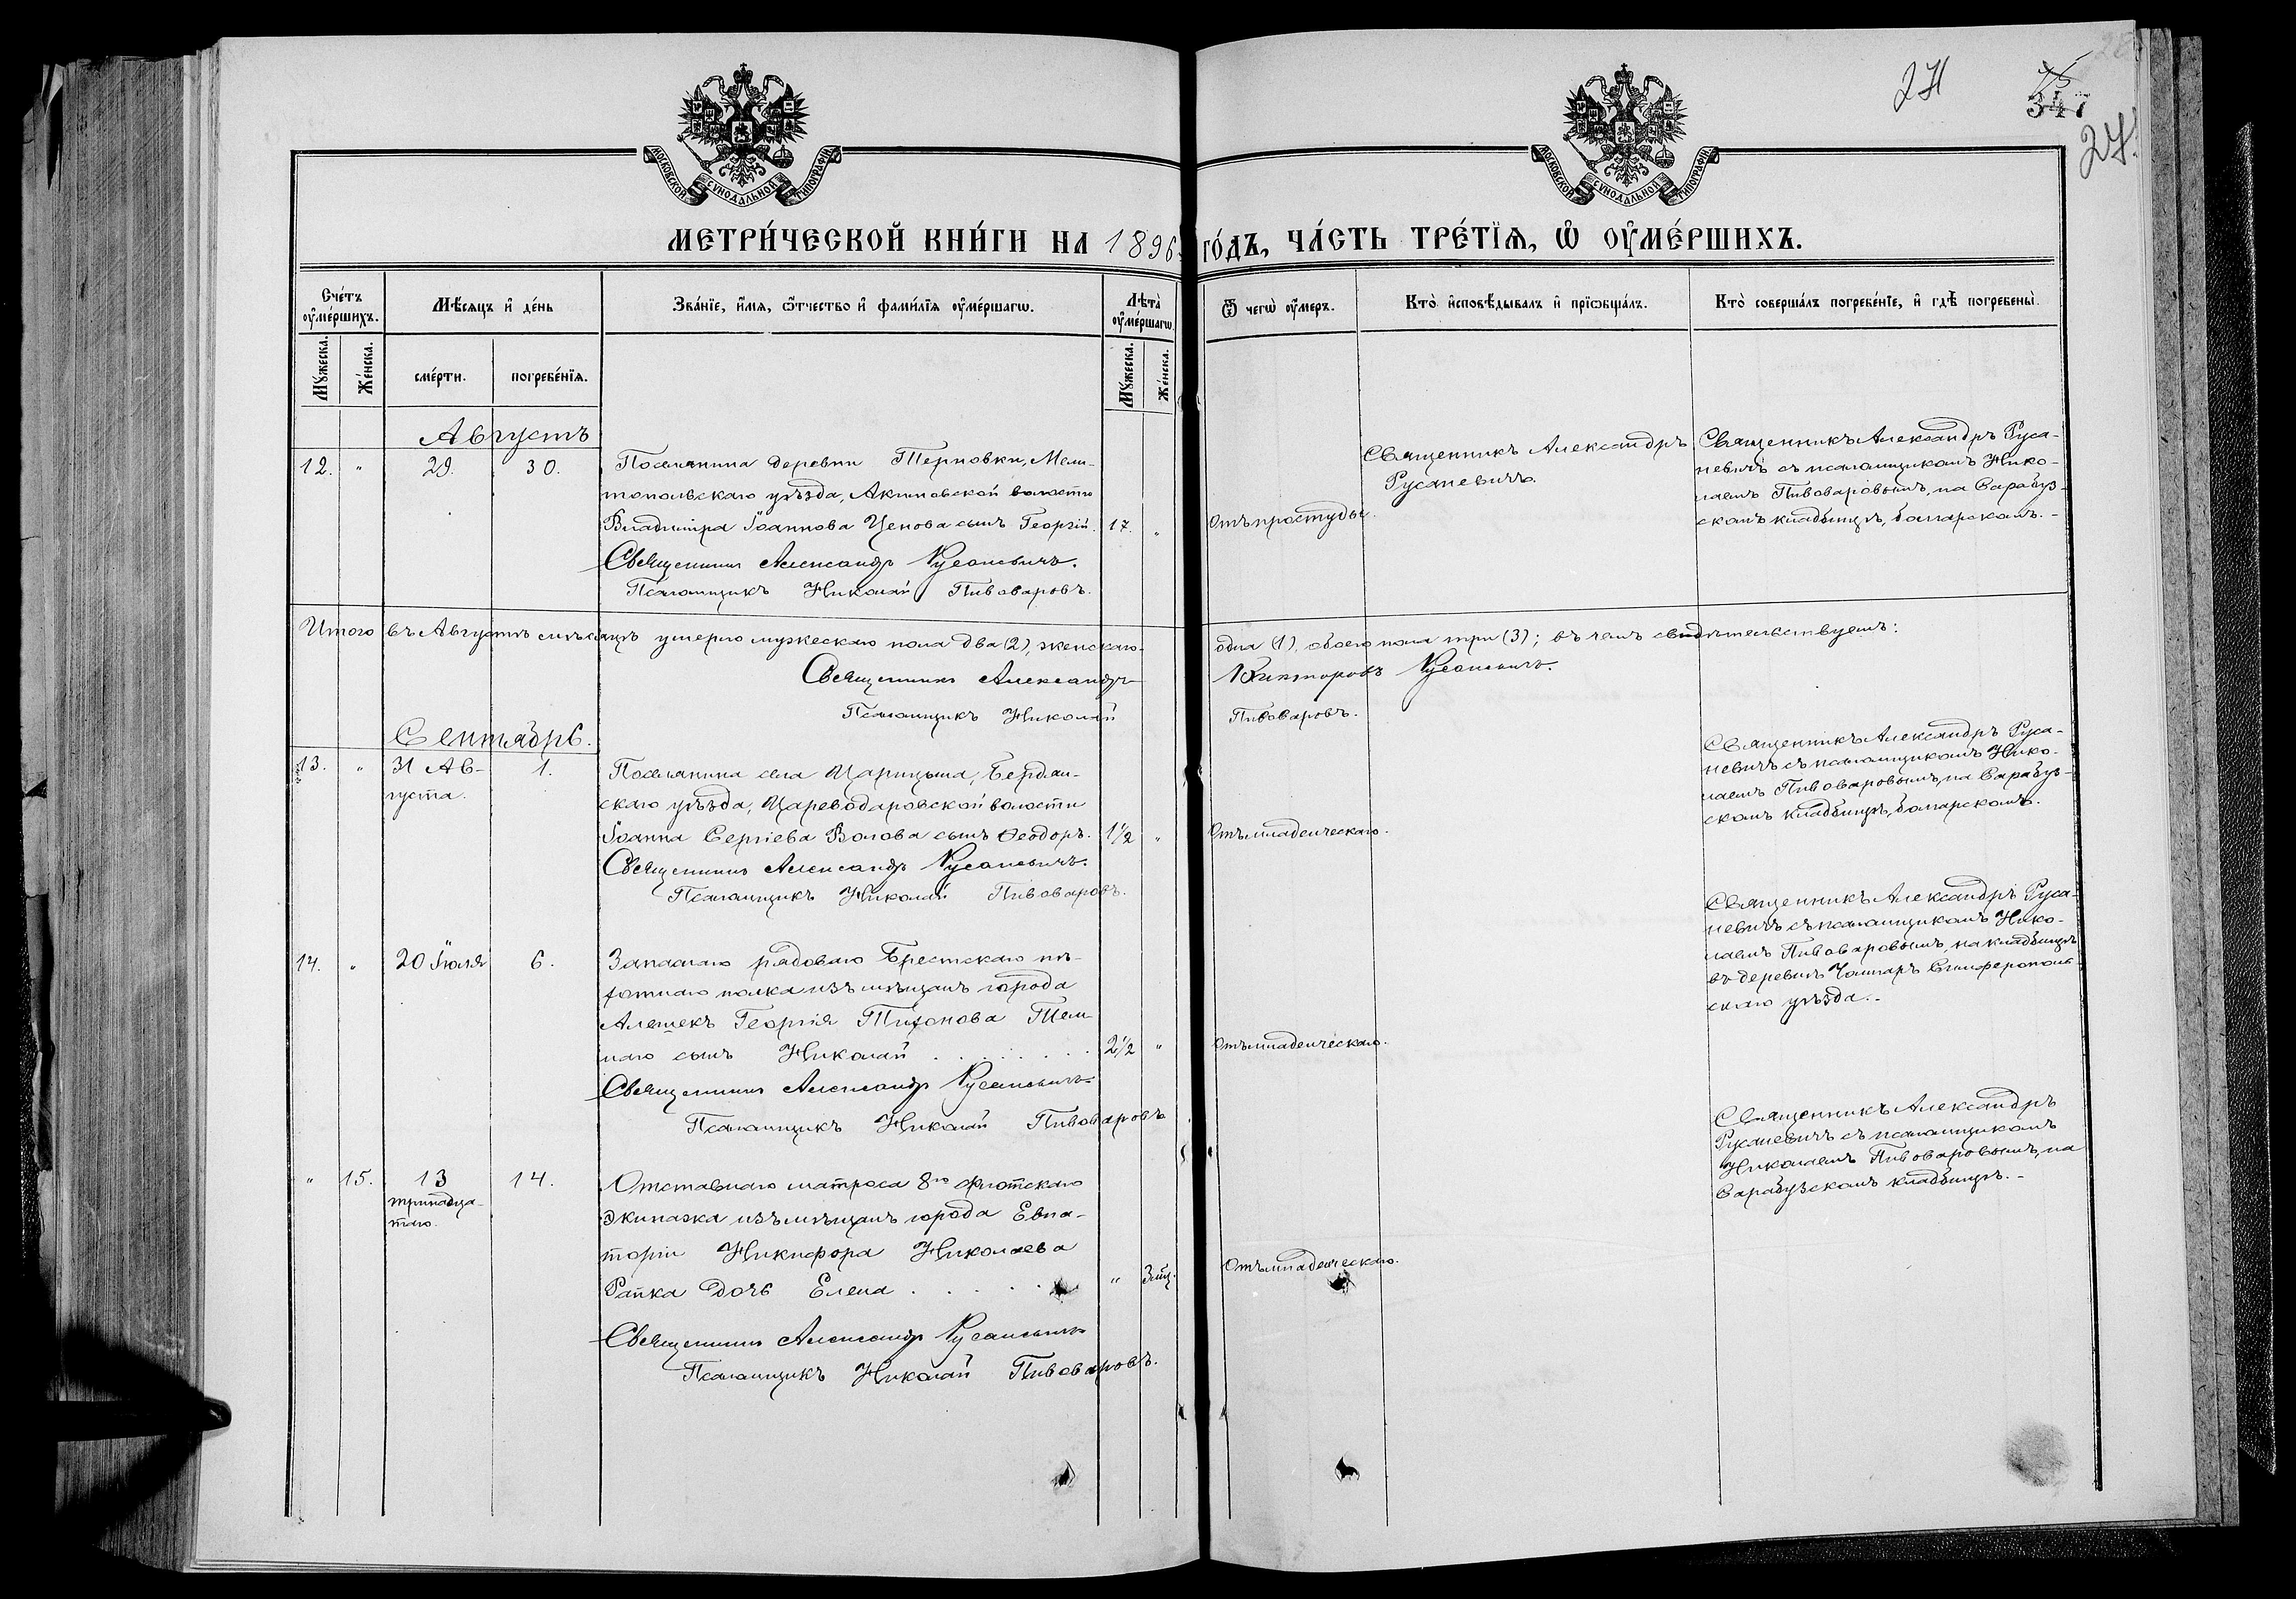 271
75
347
27.
МОСКОВСКОЙ СѴНОДАЛЬНОЙ ТИПОГРАФІИ
МОСКОВСКОЙ СѴНОДАЛЬНОЙ ТИПОГРАФІИ
МЕТРИ́ЧЕСКОЙ КНИ́ГИ НА 1896
ГО́ДЪ, ЧА́СТЬ ТРЕ́ТЇѦ, Ѡ҆ ОУ҆МЕ́РШИХЪ.
Сче́тъ оу҆ме́ршихъ.
Мѣ́сѧцъ и҆ де́нь
Зва́нїе, и҆́мѧ, ѻ҆́тчество и҆ фами́лїѧ оу҆ме́ршагѡ.
Лѣ́та оу҆ме́ршагѡ.
Ѿ чегѡ̀ оу҆́меръ.
Кто̀ и҆сповѣ́дывалъ и҆ прїѡбща́лъ.
Кто̀ соверша́лъ погребе́нїе, и҆ гдѣ̀ погребены̀.
Мꙋ́жеска.
Же́нска.
сме́рти.
погребе́нїѧ.
Мꙋ́жеска.
Же́нска.
Августъ
12. " 29. 30.
Поселянина деревни Терновки, Мели-
топольскаго уѣзда, Акимовской волости
Владиміра Іоаннова Ценова сынъ Георгій. 17. "
Священникъ Александръ Русаневичъ.
Псаломщикъ Николай Пивоваровъ.
Отъ простуды.
Священникъ Александръ
Русаневичъ.
Священникъ Александръ Руса-
невичъ съ псаломщикомъ Нико-
лаемъ Пивоваровымъ, на Сарабуз-
скомъ кладбищѣ, болгарскомъ.-
Итого въ Августѣ мѣсяцѣ умерло мужескаго пола два (2), женскаго-
одна (1), обоего пола три (3); въ чемъ свидѣтельствуемъ:
Священникъ Александръ
Викторовъ Русаневичъ.
Псаломщикъ Николай
Пивоваровъ.
Сентябрь.
13. " 31 Ав-
густа. 1.
Поселянина села Царицына, Бердян-
скаго уѣзда, Цареводаровской волости
Іоанна Сергіева Волова сынъ Ѳеодоръ. 1½ "
Священникъ Александръ Русаневичъ.
Псаломщикъ Николай Пивоваровъ.
Отъ младенческаго.
Священникъ Александръ Руса-
невичъ съ псаломщикомъ Нико-
лаемъ Пивоваровымъ, на Сарабуз-
скомъ кладбищѣ, болгарскомъ.
14. " 20 Іюля 6.
Запаснаго рядоваго Брестскаго пѣ-
хотнаго полка изъ мѣщанъ города
Алешекъ Георгія Тихонова Тем-
наго сынъ Николай . . . . . . . 2½ "
Священникъ Александръ Русаневичъ
Псаломщикъ Николай Пивоваровъ
Отъ младенческаго.
Священникъ Александръ Руса-
невичъ съ псаломщикомъ Нико-
лаемъ Пивоваровымъ, на кладбищѣ
въ деревнѣ Симферополь-
скаго уѣзда.-
" 15. 13
тринадца-
таго. 14.
Отставнаго матроса 8го флотскаго
экипажа изъ мѣщанъ города Евпа-
торіи Никифора Николаева
Рапка дочь Елена . . . . . " 3 мц.
Священникъ Александръ Русаневичъ
Псаломщикъ Николай Пивоваровъ.
Отъ младенческаго.
Священникъ Александръ
Русаневичъ съ псаломщикомъ
Николаемъ Пивоваровымъ, на
Сарабузскомъ кладбищѣ.-